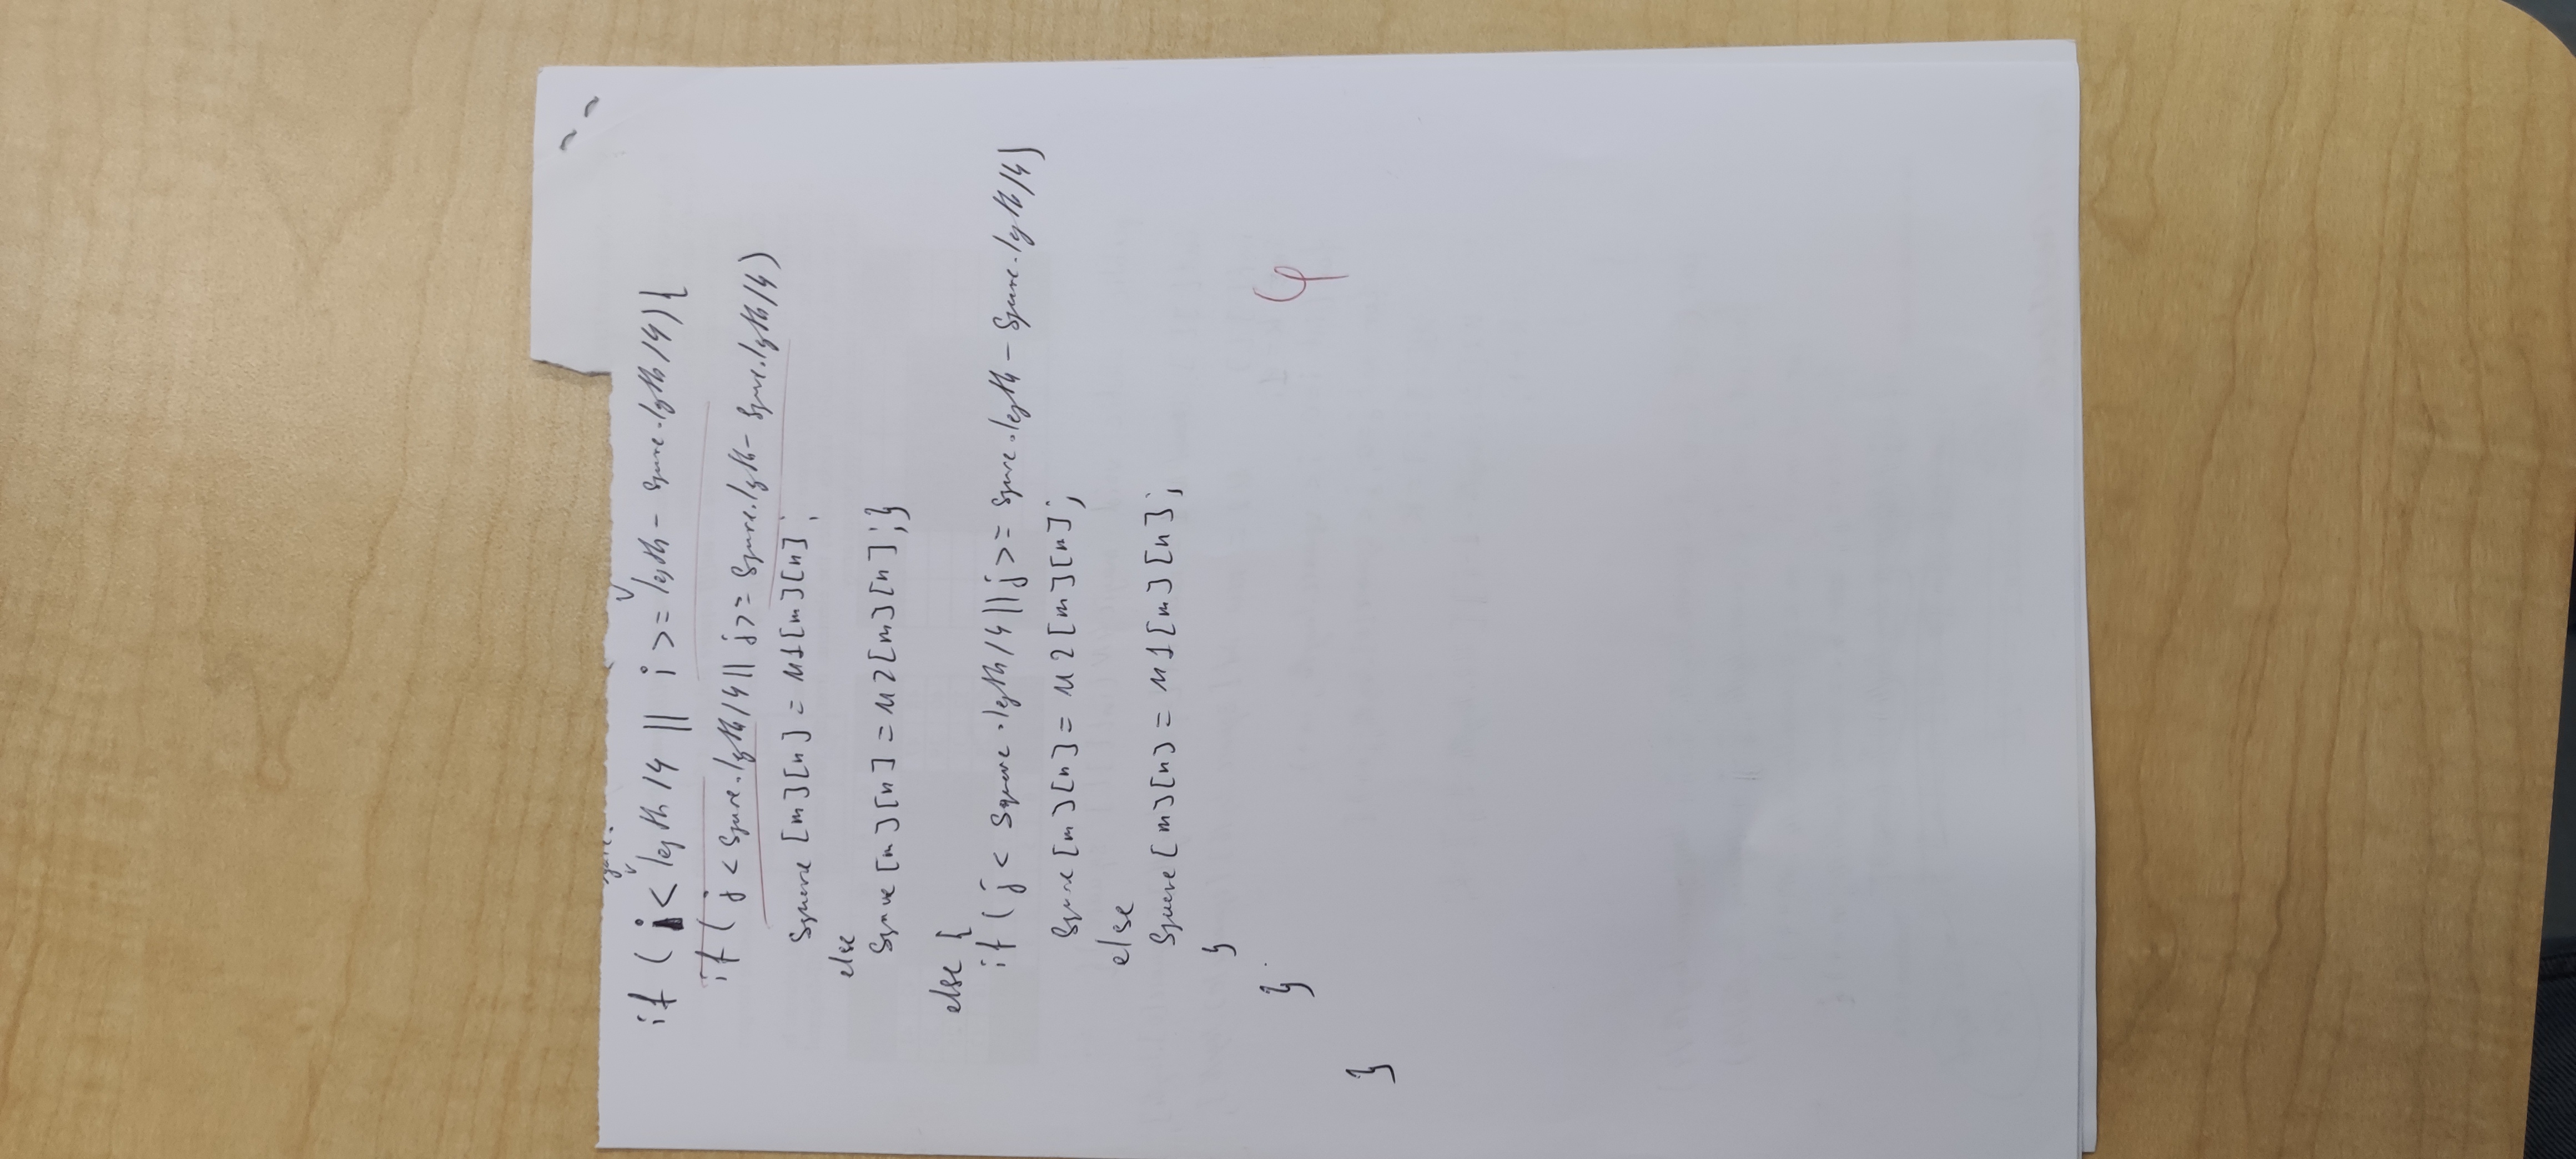 square.
if ( i < length/4 || i >= length - square.length/4) {
if ( j < square.length/4 || j >= square.length - square.length/4)
square [m][n] = M1[m][n];
else
square [m][n] = M2[m][n];}
else {
if ( j < square.length/4 || j >= square.length - square.length/4)
square [m][n] = M2[m][n];
else
square [m][n] = M1[m][n];
}
}
}